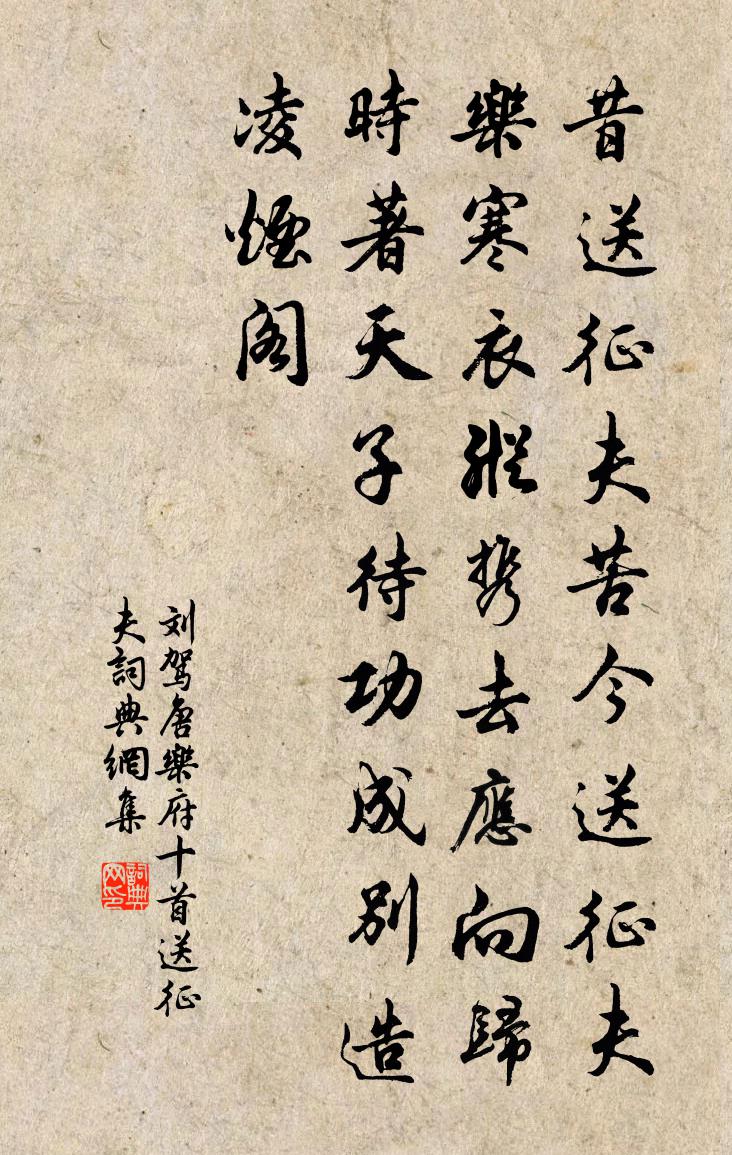 昔送征夫苦今送征夫
樂寒衣縱携去應向歸
時著天子待功成別造
凌煙阁
刘驾唐樂府十首送征
夫詞典網集
詞典网印